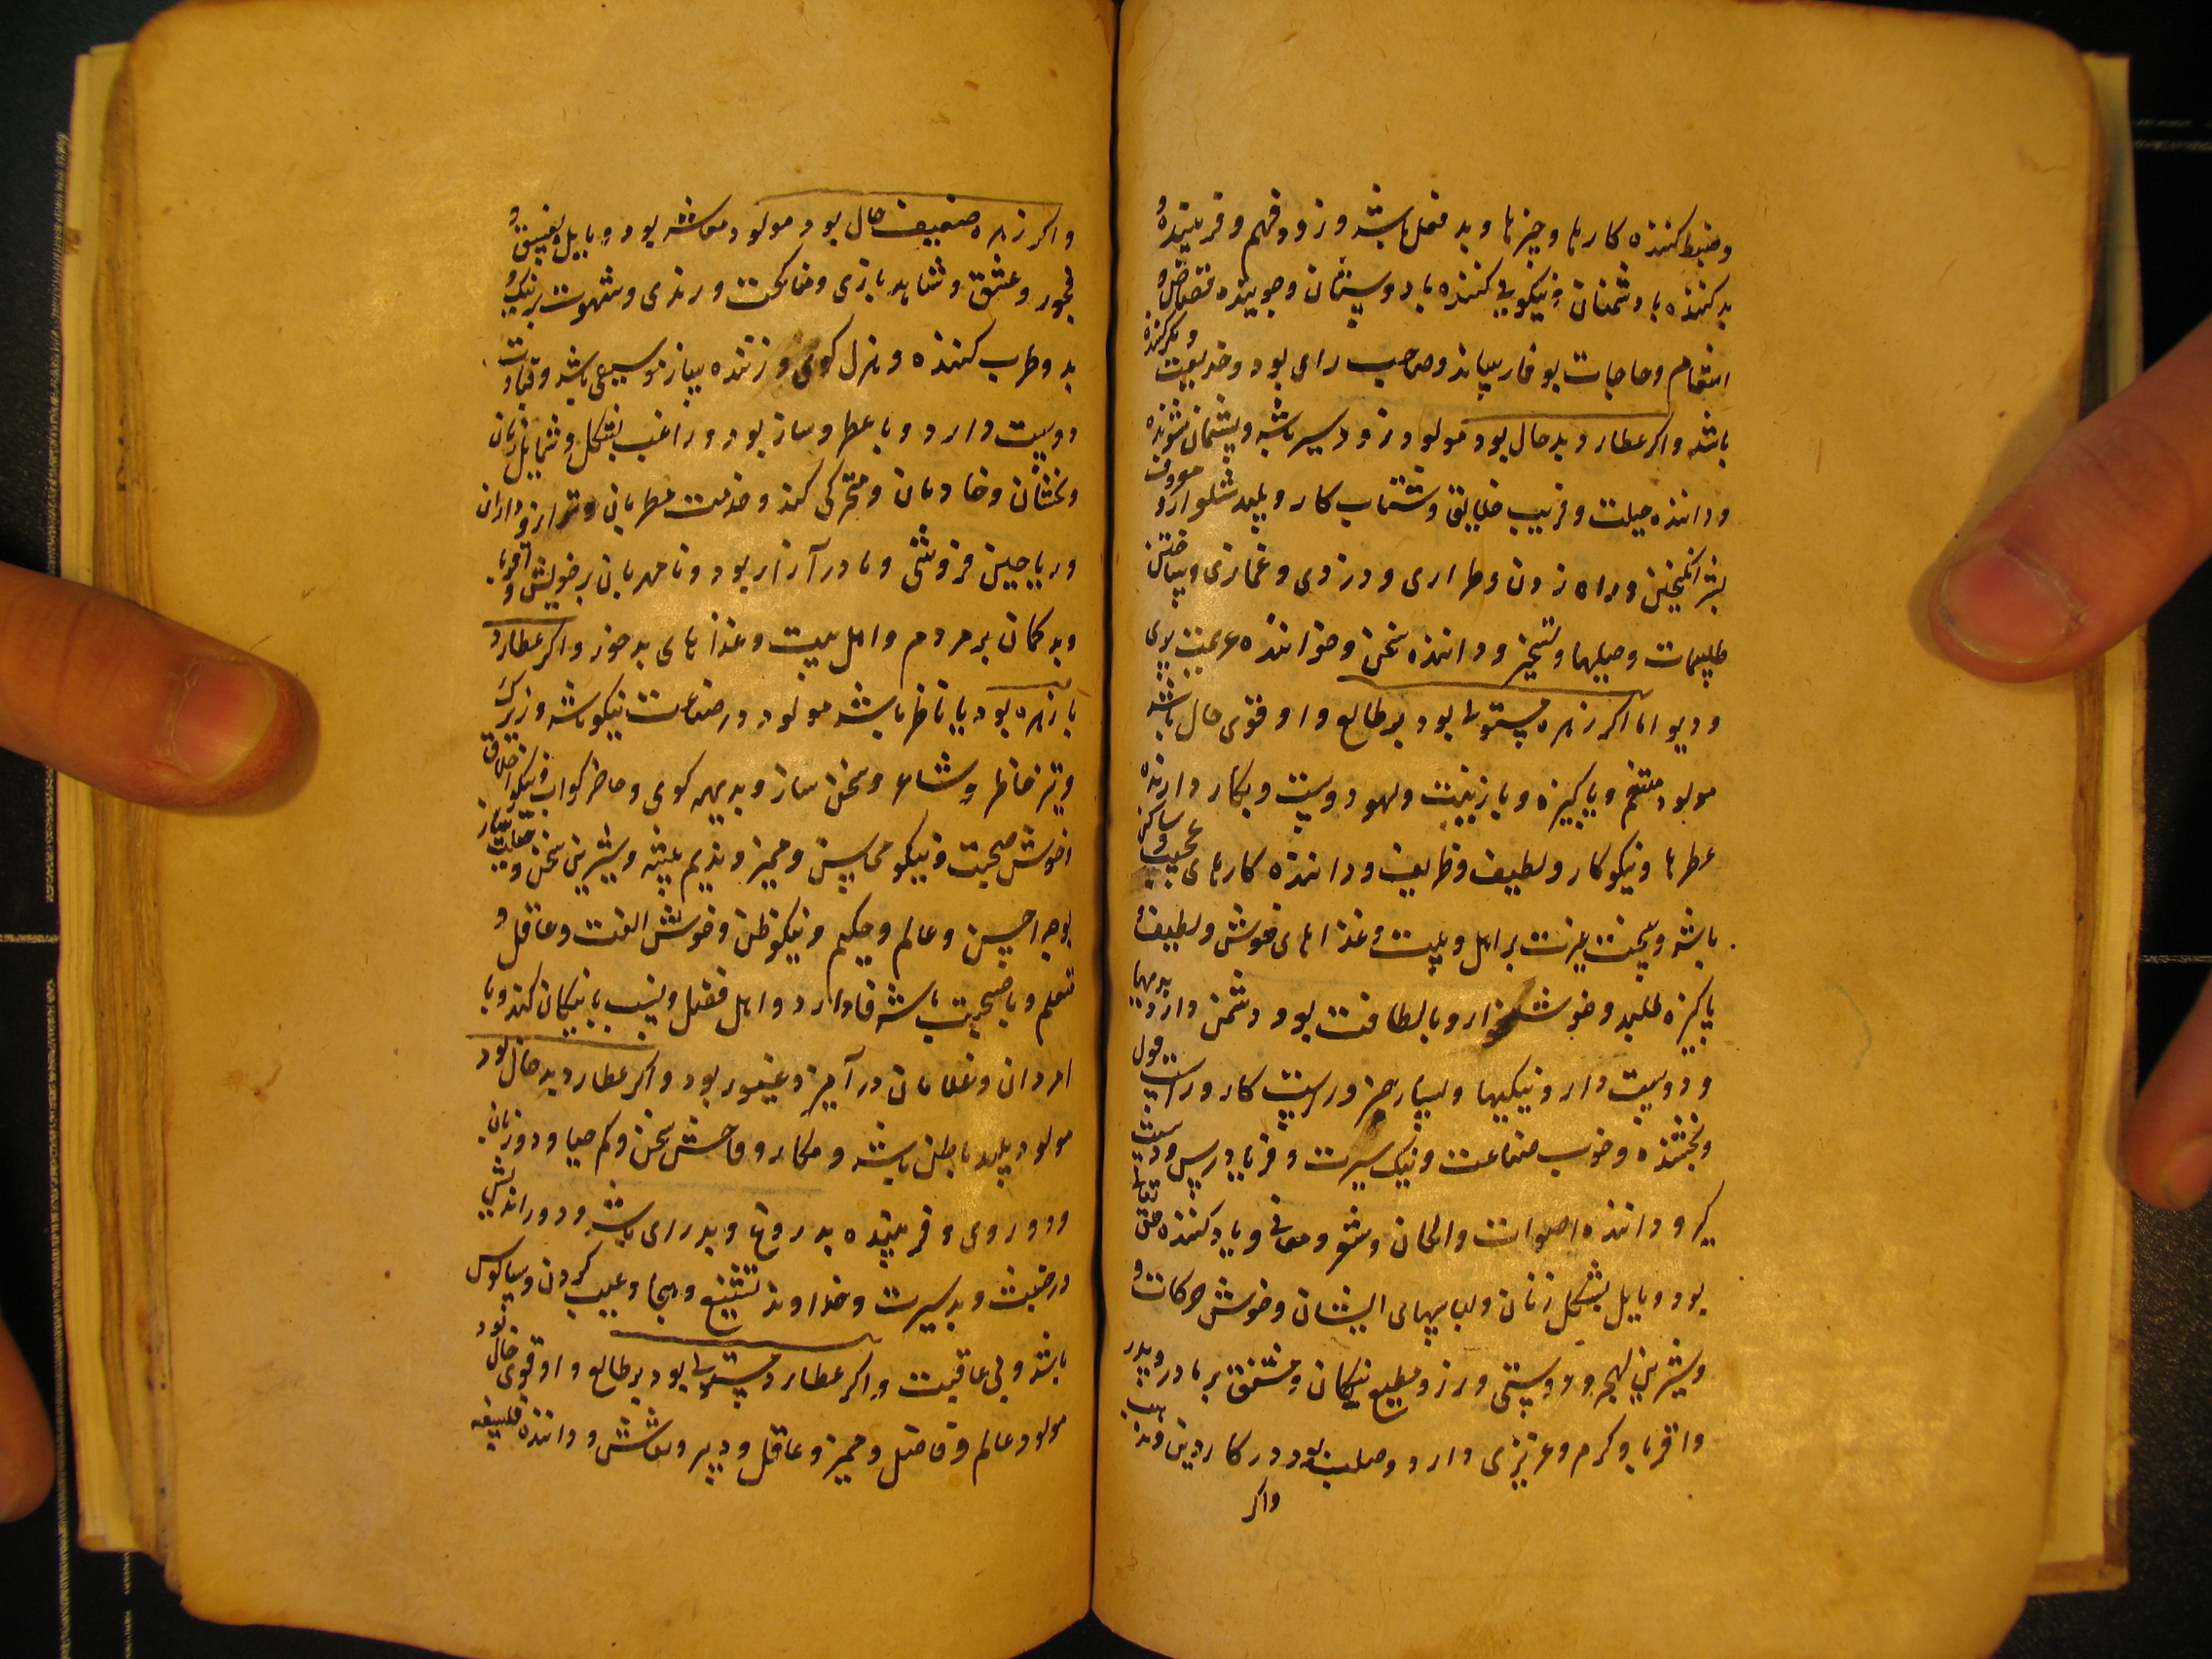 وضبط کننده کارها و چیزها و بد فعل باشد و زود فهم و فریبنده و
بد کننده با دشمنان و نیکویی کننده با دوستان و جوینده قصاص و
انتقام و حاجات بوفا رساند و صاحب رای بود و خدیعت و مکر کننده
باشد و اکر عطارد بد حال بود مولود زود سیر باشد و پشیمان شونده
و داننده حیلت و فریب خلایق و شتاب کار و پلید شلوار و معروف
بشر انکیختن و راه زدن و طراری و دزدی و غمازی و ساختن
طلسمات و حیلها و تسخیر و داننده سخن و خواننده عزیمت پری
و دیو اما اکر زهره مستولی بود بر طالع و او قوی حال باشد
مولود متنعم و پاکیزه و با زینت و لهو دوست و بکار دارنده
عطرها و نیکو کار و لطیف و ظریف و داننده کارهای عجیب و ساکن
باشد و سخت غیرت بر اهل و بیت و غذاهای خوش و لطیف و
پاکیزه طلبد و خوشخوار و با لطافت بود و دشمن دارد بدیها
و دوست دارد نیکیها و بسیار چیز و راست کار و راست قول
و بخشنده و خوب صناعت و نیک سیرت و فریادرس و دست
کیر و داننده اصوات و الحان و شعر و معانی و یاد کننده حق تعالی
بود و مایل بشکل زنان و لباسهای ایشان و خوش حرکات و
و شیرین لهجه و دوستی ورز و مطیع نیکان و مشفق بر مادر و پدر
و اقربا و کرم و عزیزی دارد و صلب بود در کار دین و مذهب
واکر
واکر زهره ضعیف حال بود مولود معاشر بود و مایل بفسق و
فجور و عشق و شاهد بازی و مناکحت و رندی و شهوت بر نیک و
بد و طرب کننده و هزل کوی و زننده ساز موسیقی باشد و قیادت
دوست دارد و با عطر و ساز بود و راغب بشکل و شمایل زنان
و مخنثان و خادمان و متحرکی کند و خدمت مطربان و ترازو داران
و ریاحین فروشی و مادر آزار بود و نا مهربان بر خویش و اقربا
و بد کمان بر مردم و اهل بیت و غذاهای بد خورد و اکر عطارد
با زهره بود یا ناظر باشد مولود در صناعت نیکو باشد و زیرک
و تیز خاطر و شاعر و سخن ساز و بدیهه کوی و حاضر جواب و نیکو اخلاق
خوش صحبت و نیکو محاسن و ممیز و ندیم پیشه و شیرین سخن و
بوجه احسن و عالم و حکیم و نیکو ظن و خوش الفت و عاقل و
متعلم و با نصیحت باشد و اهل فضل و نسب با نیکان کند و با
امردان و غلامان در آمیزد و غیور بود و اکر عطارد بد حال بود
مولود پلید باطن باشد و مکار و فاحش سخن و کم حیا و دو زبان
و دو روی و فریبنده بدروغ و بد رای باشد و دور اندیش
در خبث و بد سیرت و خداوند تشنیع و هجا و عیب کردن و سالوس
باشد و بی عاقبت و اکر عطارد مستولی بود بر طالع و او قوی حال بود
مولود عالم و فاضل و ممیز و عاقل و دبیر و نقاش و داننده فلسفه